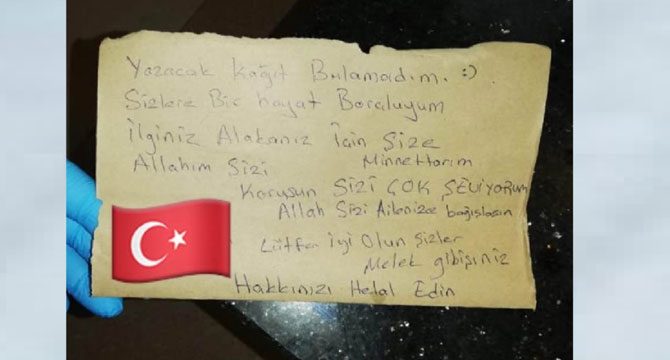 Yazacak Kağıt Bulamadım. :)
Sizlere Bir hayat Borçluyum
İlginiz Alakanız İçin Size
Allahım Sizi Minnettarım
Korusun Sizi ÇOK SEVİYORUM
Allah Sizi Ailenize bağışlasın
Lütfen İyi Olun Sizler
Melek gibisiniz
Hakkınızı Helal Edin